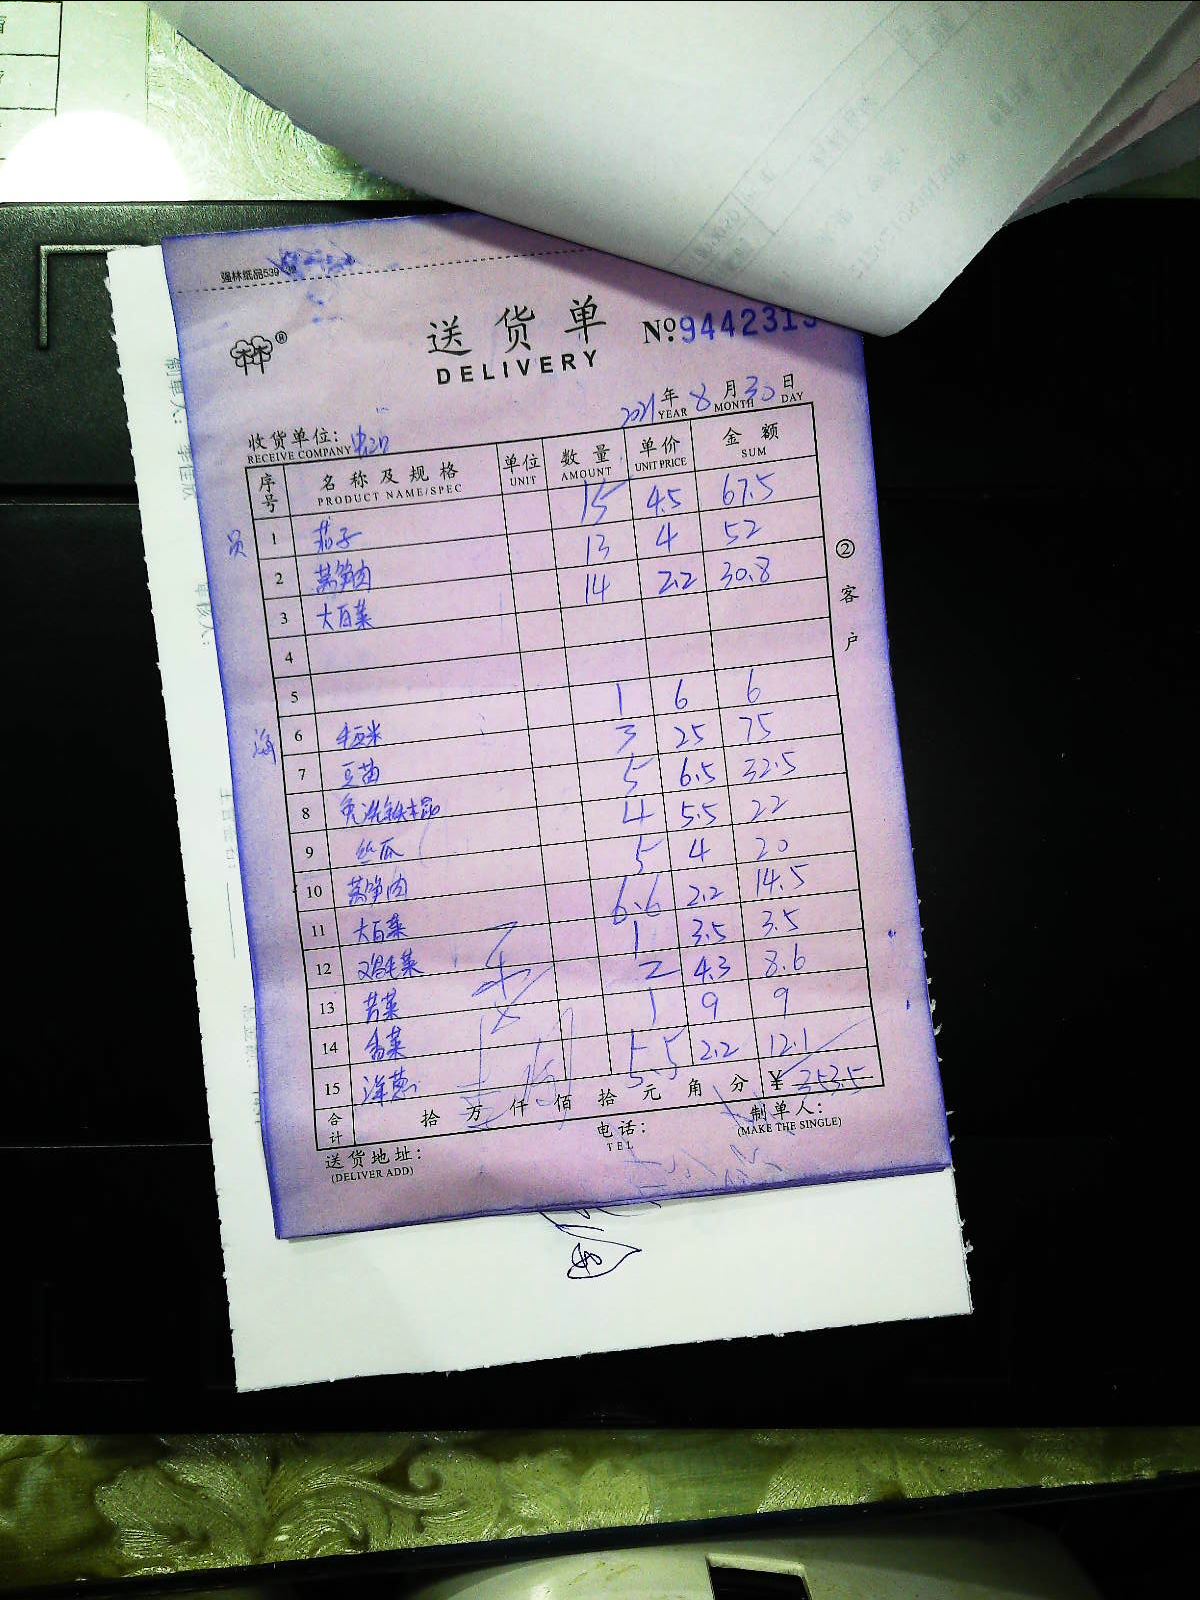 强林纸品539
送货单 No:944231
DELIVERY
2021年 8月 30日
YEAR MONTH DAY
收货单位:
RECEIVE COMPANY
序号 名称及规格 单位 数量 单价 金额
PRODUCT NAME/SPEC UNIT AMOUNT UNIT PRICE SUM
员 1 茄子 15 4.5 67.5
2 莴笋肉 13 4 52
3 大白菜 14 2.2 30.8
4
5
海 6 1 6 6
7 豆苗 3 25 75
8 免洗铁棍 5 6.5 32.5
9 丝瓜 4 5.5 22
10 莴笋肉 5 4 20
11 大白菜 6.6 2.2 14.5
12 鸡毛菜 1 3.5 3.5
13 苦菜 2 4.3 8.6
14 香菜 1 9 9
15 洋葱 5.5 2.2 12.1
合计 拾 万 仟 佰 拾 元 角 分 ¥ 353.5
送货地址: 电话: 制单人:
(DELIVER ADD) TEL (MAKE THE SINGLE)
②客户